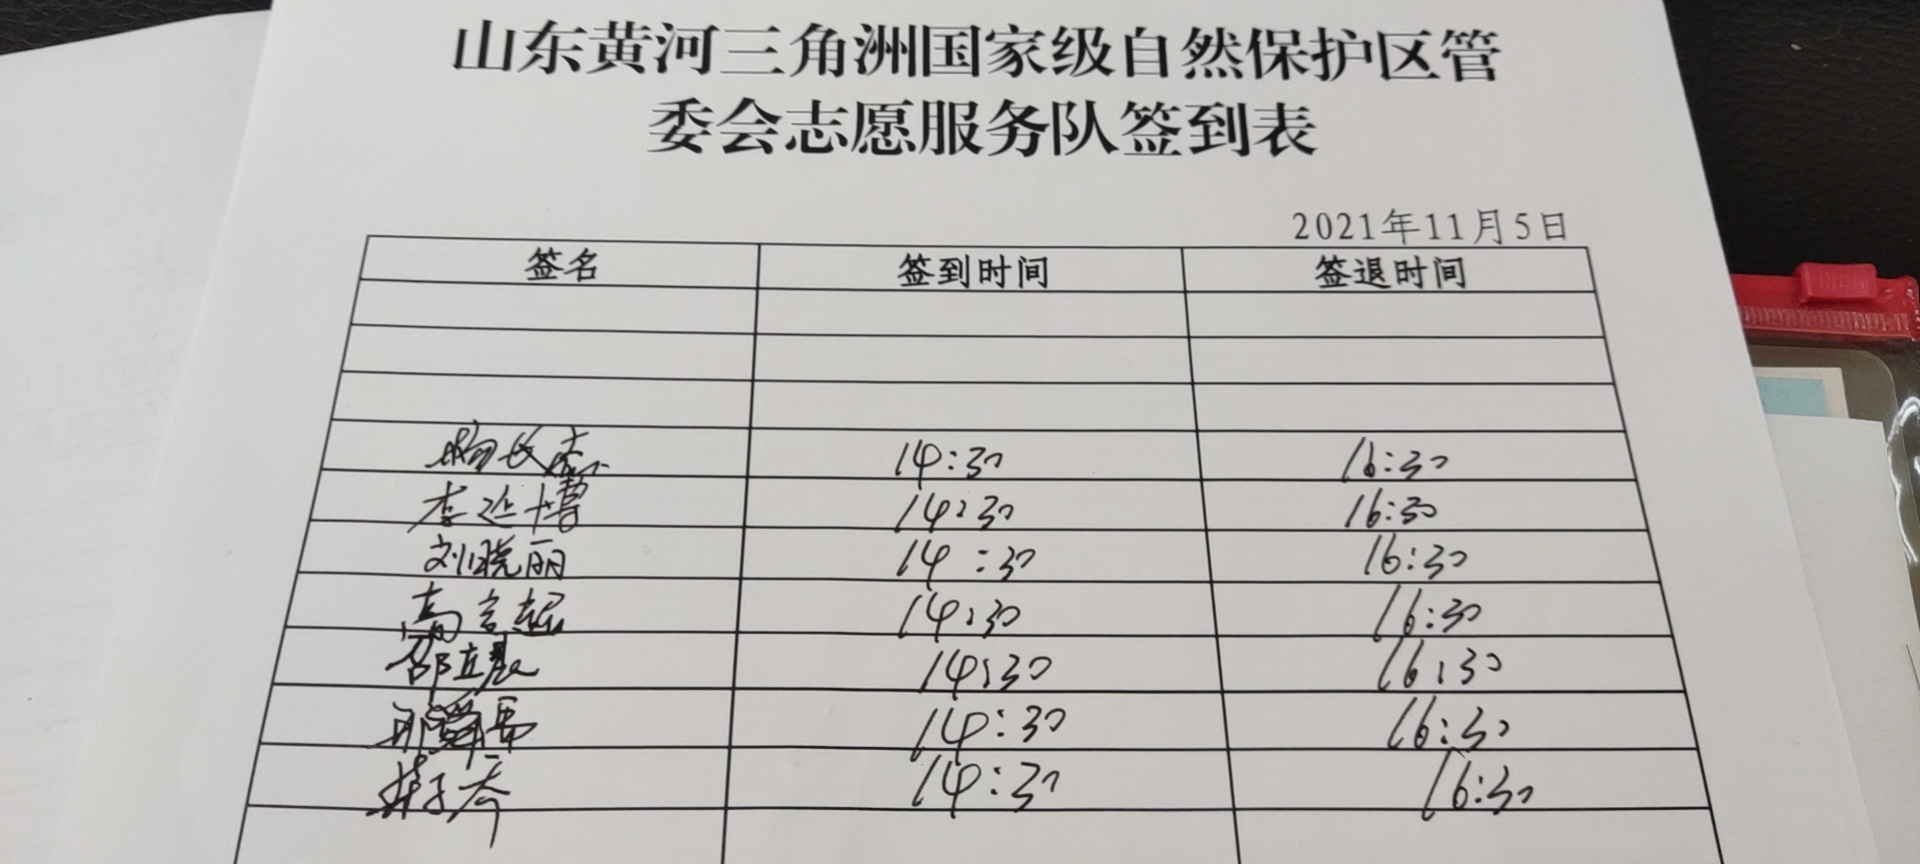 山东黄河三角洲国家级自然保护区管
委会志愿服务队签到表
2021年11月5日
签名 签到时间 签退时间
14:30 16:30
李延博 14:30 16:30
刘晓丽 14:30 16:30
高言起 14:30 16:30
邵立晨 14:30 16:30
14:30 16:30
14:30 16:30